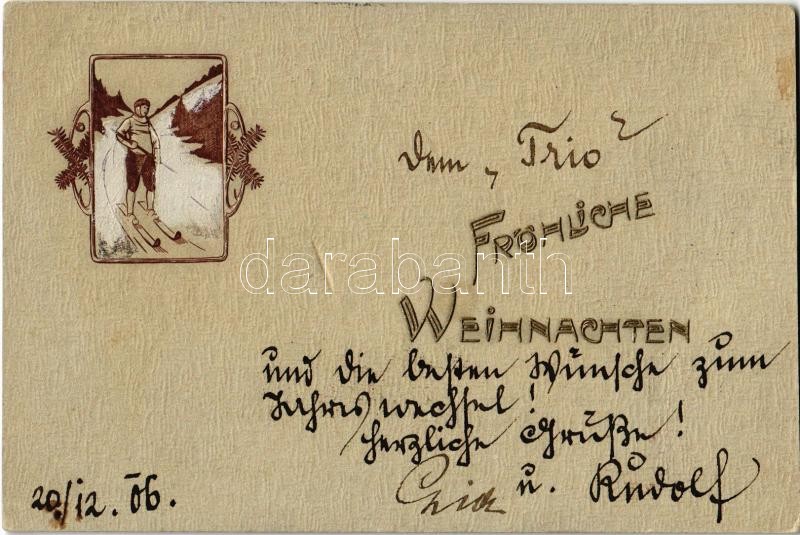 dem „Trio“
FRÖHLICHE
WEIHNACHTEN
und die besten Wünsche zum
Jahreswechsel!
herzliche Grüße!
u. Rudolf
20./12. 06.
darabanth